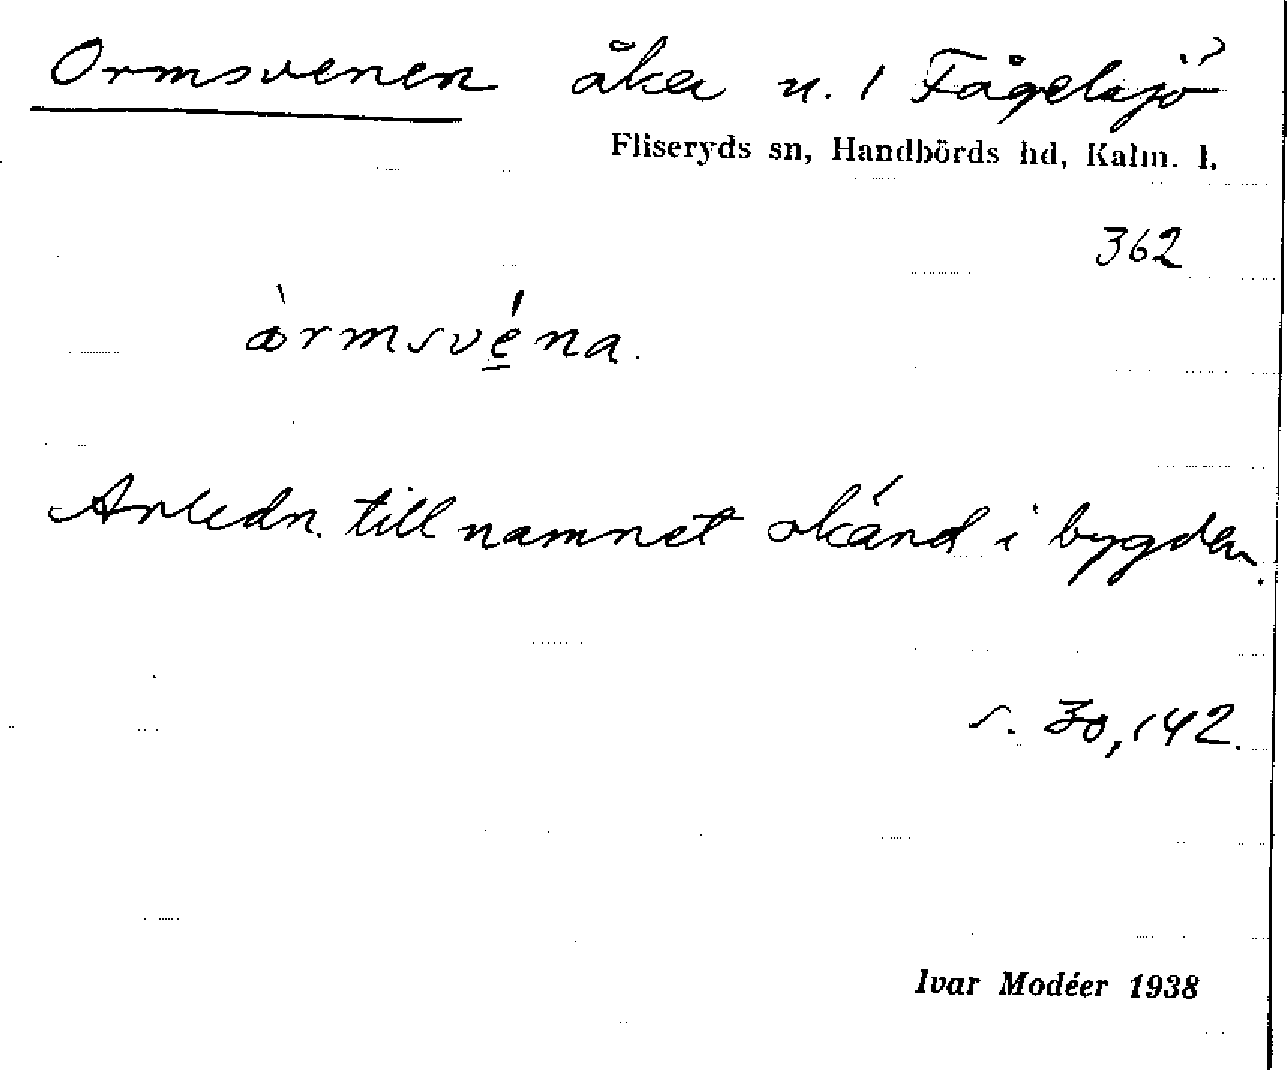 Ormsvenen åker n. 1 Fågelsjö
Fliseryds sn, Handbörds hd, Kalm. l.
362
òrmsvéna.
Anledn. till namnet okänd i bygden.
s. 30, 142.
Ivar Modéer 1938